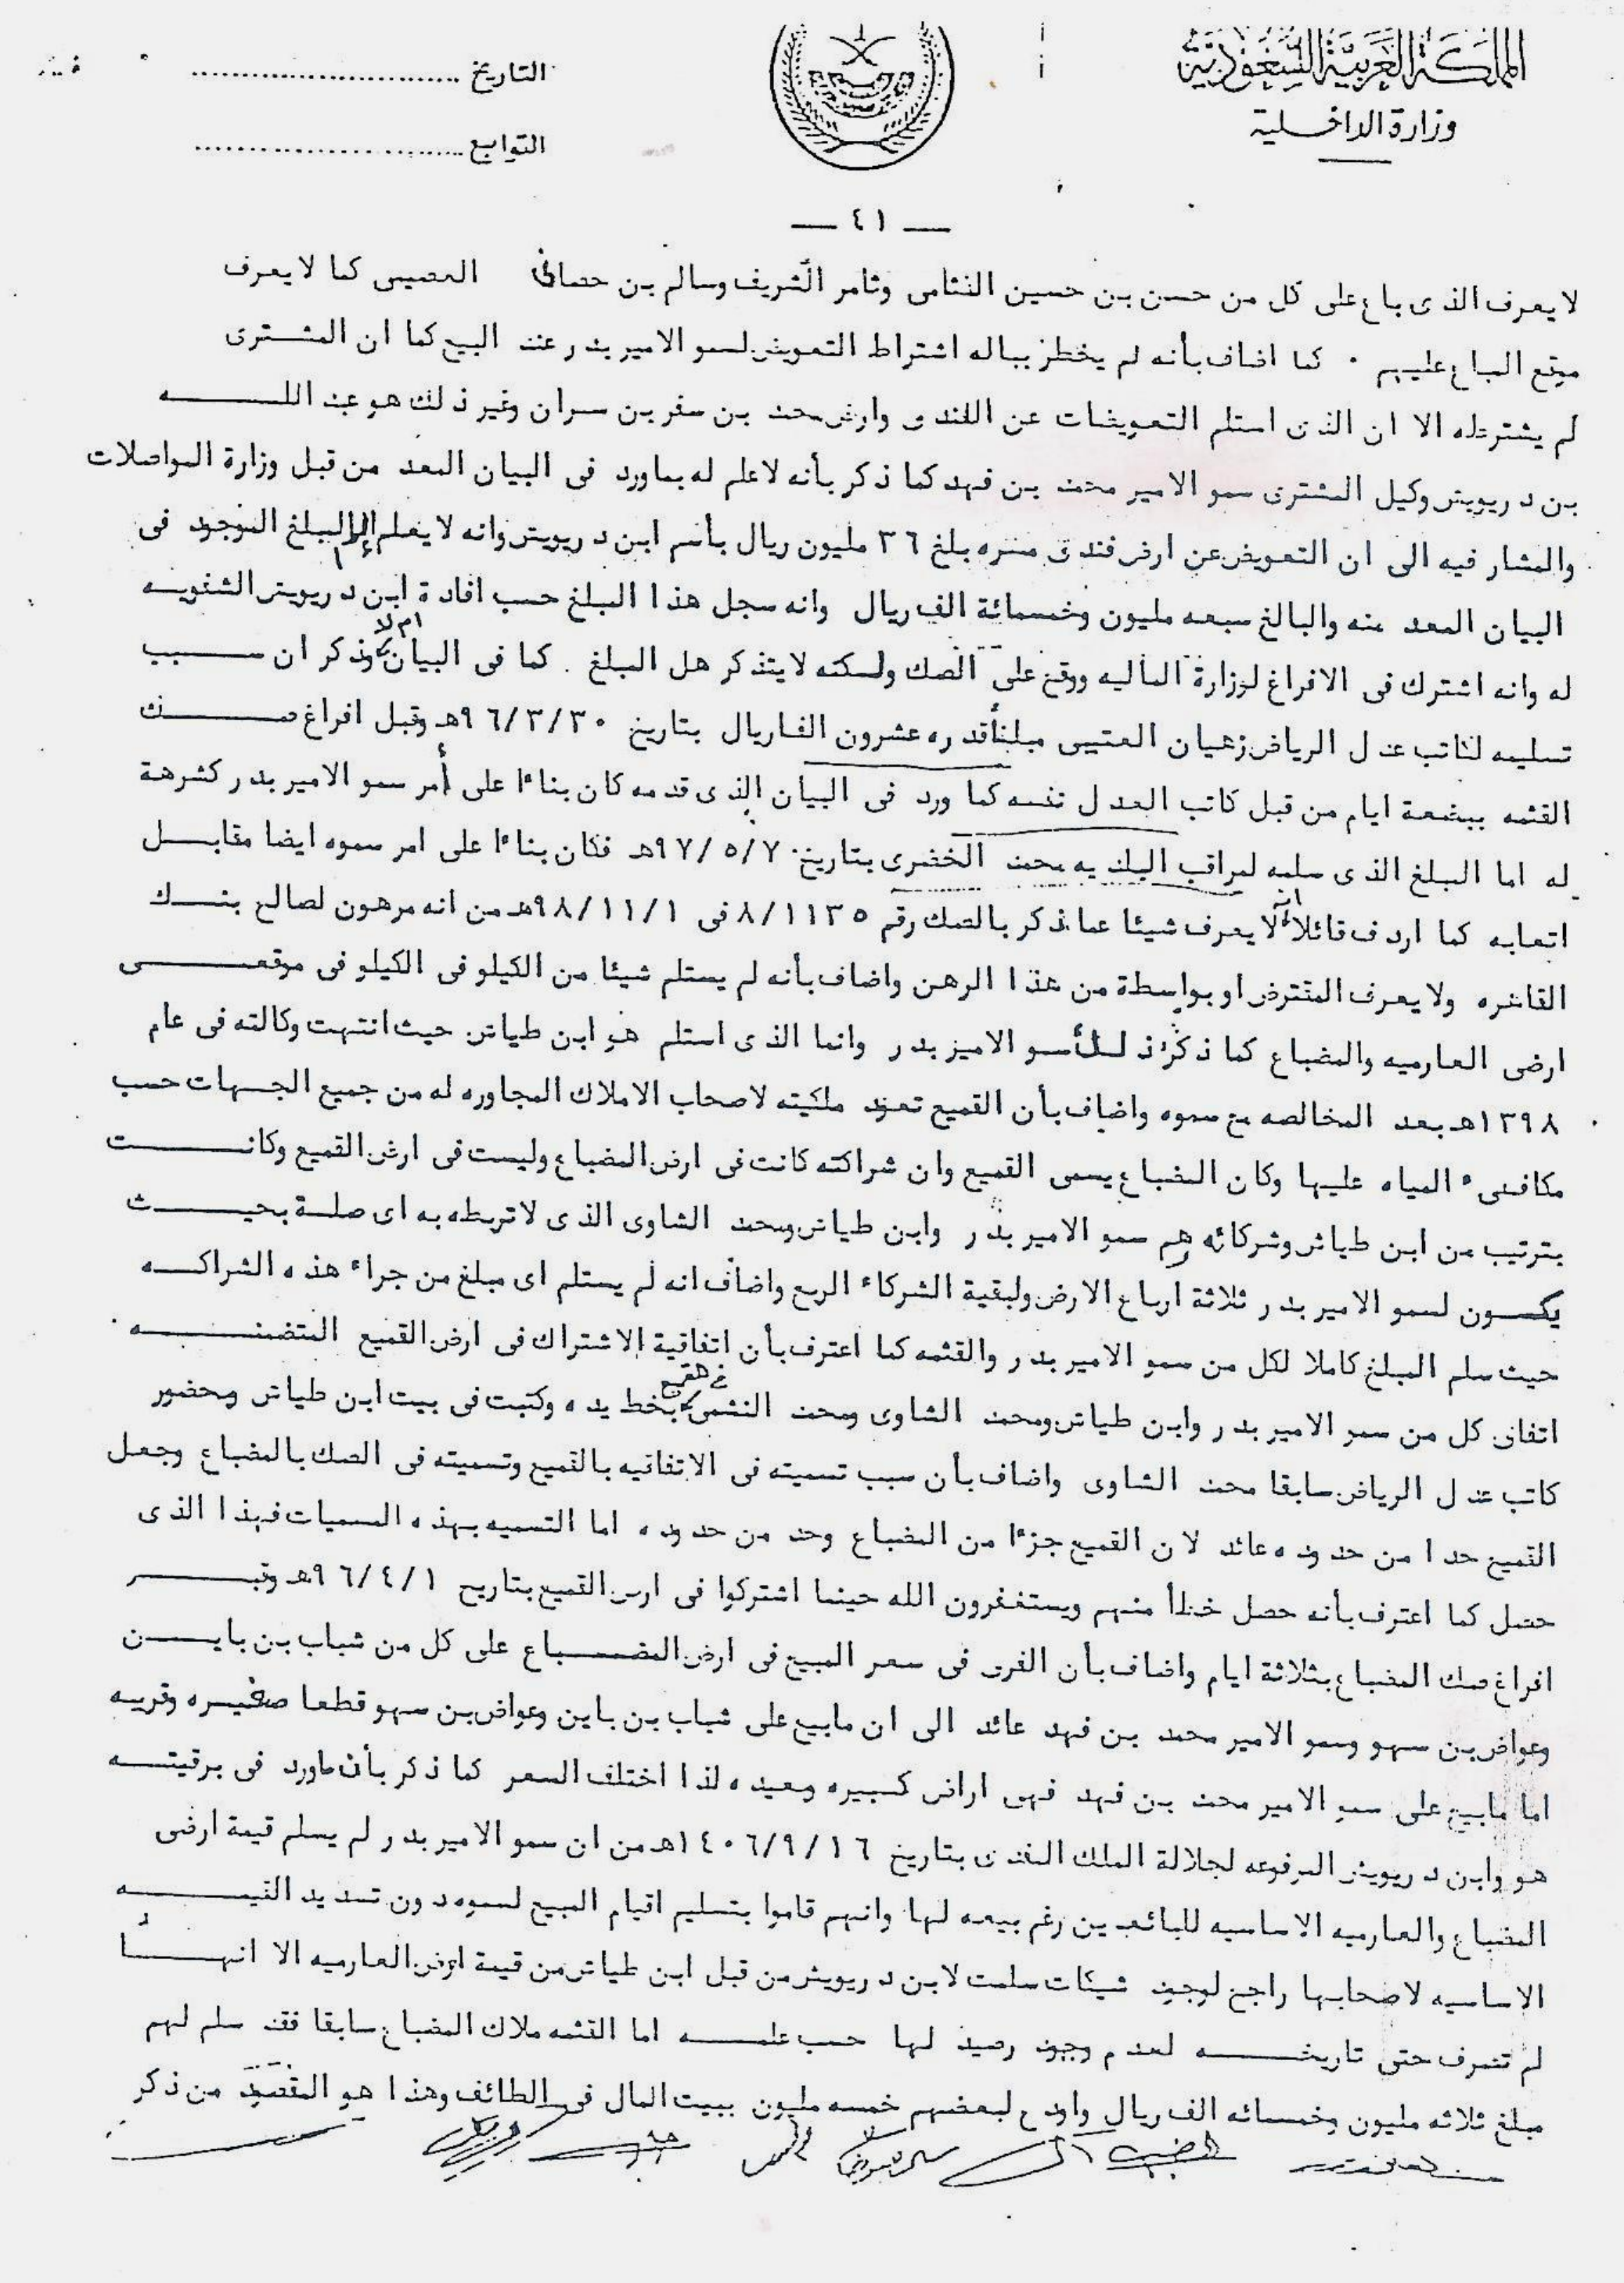 المملكة العربية السعودية
وزارة الداخلية
التاريخ
التوابع
— ٤١ —
لا يعرف الذى باع على كل من حسن بن حسين وثامر الشريف وسالم بن كما لا يعرف
موقع المباع عليهم . كما اضاف بأنه لم يخطر بباله اشتراط التعويض لسمو الامير بدر عند البيع كما ان المشترى
لم يشترطه الا ان الذى استلم التعويضات عن الفندق وارض محمد بن سفر بن سران وغير ذلك هو عبد اللـــه
بن درويش وكيل المشترى سمو الامير محمد بن فهد كما ذكر بأنه لا علم له بما ورد فى البيان المعد من قبل وزارة المواصلات
والمشار فيه الى ان التعويض عن ارض فندق مسره بلغ ٣٦ مليون ريال بأسم ابن درويش وانه لا يعلم الا المبلغ الموجود فى
البيان المعد منه والبالغ سبعه مليون وخمسمائة الف ريال وانه سجل هذا المبلغ حسب افادة ابن درويش الشفويه
له وانه اشترك فى الافراغ لوزارة الماليه ووقع على الصك ولكنه لا يتذكر هل المبلغ . كما فى البيان ام لا وذكر ان ســبب
تسليمه لكاتب عدل الرياض زهيان العتيبى مبلغا قدره عشرون الفا ريال بتاريخ ٩٦/٣/٣٠هـ وقبل افراغ صـــك
القثمه ببضعة ايام من قبل كاتب العدل نفسه كما ورد فى البيان الذى قدمه كان بناءا على أمر سمو الامير بدر كشرهة
له اما المبلغ الذى سلمه لمراقب البلديه محمد الخضرى بتاريخ ٩٧/٥/٧هـ فكان بناءا على امر سموه ايضا مقابــل
اتعابه كما اردف قائلا انه لا يعرف شيئا عما ذكر بالصك رقم ٨/١١٣٥ فى ٩٨/١١/١هـ من انه مرهون لصالح بنــك
القاهره ولا يعرف المقترض او بواسطة من هذا الرهن واضاف بأنه لم يستلم شيئا من الكيلو فى الكيلو فى موقعـــى
ارضى العارميه والمضباع كما ذكر ذلك سمو الامير بدر وانما الذى استلم هو ابن طياش حيث انتهت وكالته فى عام
١٣٩٨هـ بعد المخالصه مع سموه واضاف بأن القميع تعود ملكيته لاصحاب الاملاك المجاوره له من جميع الجهات حسب
مكافىء المياه عليها وكان المضباع يسمى القميع وان شراكته كانت فى ارض المضباع وليست فى ارض القميع وكانـــت
بترتيب من ابن طياش وشركائه وهم سمو الامير بدر وابن طياش ومحمد الشاوى الذى لا تربطه به اى صلة بحيـــث
يكــون لسمو الامير بدر ثلاثة ارباع الارض ولبقية الشركاء الربع واضاف انه لم يستلم اى مبلغ من جراء هذه الشراكــه
حيث سلم المبلغ كاملا لكل من سمو الامير بدر والقثمه كما اعترف بأن اتفاقية الاشتراك فى ارض القميع المتضمنـــه
اتفاق كل من سمو الامير بدر وابن طياش ومحمد الشاوى ومحمد النشمى فى القميع بخط يده وكتبت فى بيت ابن طياش وبحضور
كاتب عدل الرياض سابقا محمد الشاوى واضاف بأن سبب تسميته فى الاتفاقيه بالقميع وتسميته فى الصك بالمضباع وجعل
القميع حدا من حدوده عائد لان القميع جزءا من المضباع وحد من حدوده اما التسميه بهذه المسميات فهذا الذى
حصل كما اعترف بأنه حصل خطأ منهم ويستغفرون الله حينما اشتركوا فى ارض القميع بتاريخ ٩٦/٤/١هـ وقبـــر
افراغ صك المضباع بثلاثة ايام واضاف بأن الفرق فى سعر المبيع فى ارض المضـــباع على كل من شباب بن بايـــن
وعواض بن سهو وسمو الامير محمد بن فهد عائد الى ان مابيع على شباب بن باين وعواض بن سهو قطعا صغيره وقريبه
اما مابيع على سمو الامير محمد بن فهد فهى اراض كبيره وبعيده لذا اختلف السعر كما ذكر بأن ماورد فى برقيتــه
هو وابن درويش المرفوعه لجلالة الملك المفدى بتاريخ ١٤٠٦/٩/١٦هـ من ان سمو الامير بدر لم يسلم قيمة ارضى
المضباع والعارميه الاساسيه للبائعين رغم بيعه لها وانهم قاموا بتسليم اقيام المبيع لسموه دون تسديد القيمـــه
الاساسيه لاصحابها راجع لوجود شيكات سلمت لابن درويش من قبل ابن طياش من قيمة ارض العارميه الا انهـــا
لم تصرف حتى تاريخـــه لعدم وجود رصيد لها حسب علمـــه اما القثمه ملاك المضباع سابقا فقد سلم لهم
مبلغ ثلاثه مليون وخمسمائه الف ريال واودع لبعضهم خمسه مليون ببيت المال فى الطائف وهذا هو المقصود من ذكر